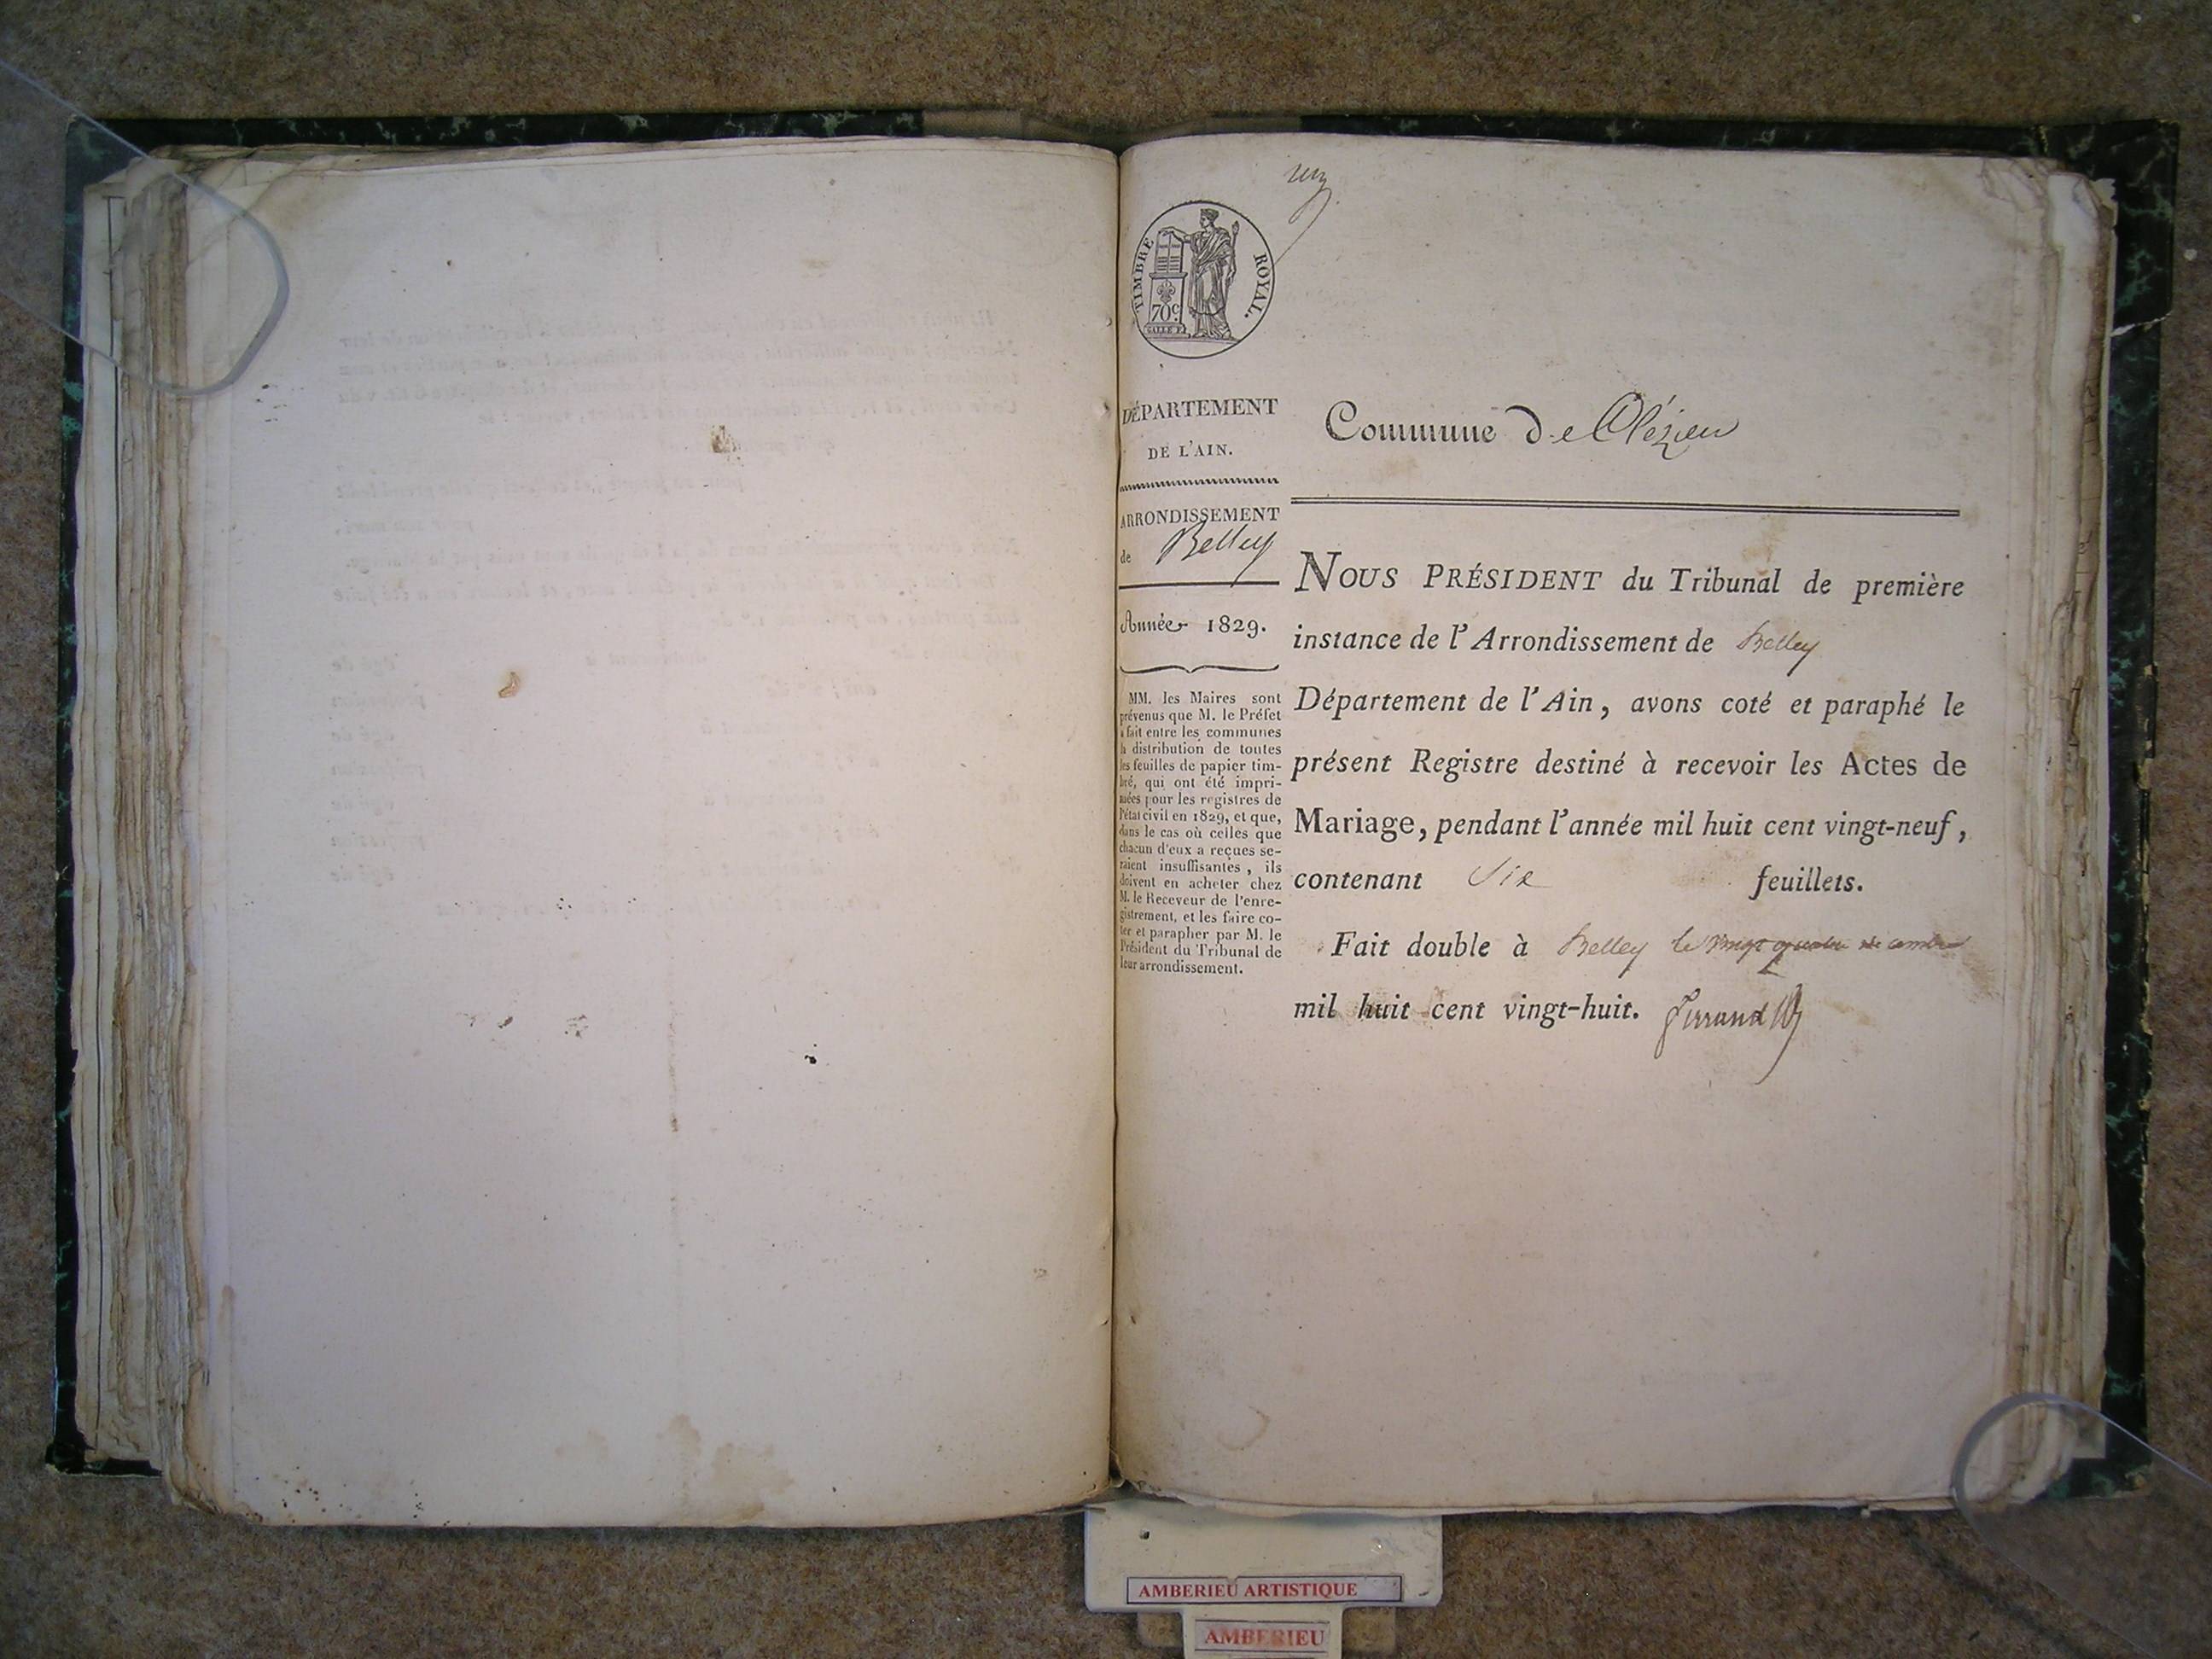 un
TIMBRE ROYAL.
70c
DÉPARTEMENT
DE L'AIN.
ARRONDISSEMENT
de Belley
Année 1829.
MM. les Maires sont
prévenus que M. le Préfet
a fait entre les communes
la distribution de toutes
les feuilles de papier tim-
bré, qui ont été impri-
mées pour les registres de
l'état civil en 1829, et que,
dans le cas où celles que
chacun d'eux a reçues se-
raient insuffisantes, ils
doivent en acheter chez
M. le Receveur de l'enre-
gistrement, et les faire co-
ter et parapher par M. le
Président du Tribunal de
leur arrondissement.
Commune de Clézieu
NOUS PRÉSIDENT du Tribunal de première
instance de l'Arrondissement de Belley
Département de l'Ain, avons coté et paraphé le
présent Registre destiné à recevoir les Actes de
Mariage, pendant l'année mil huit cent vingt-neuf,
contenant Six feuillets.
Fait double à Belley le vingt quatre décembre
mil huit cent vingt-huit. Ferrand
AMBERIEU ARTISTIQUE
AMBERIEU